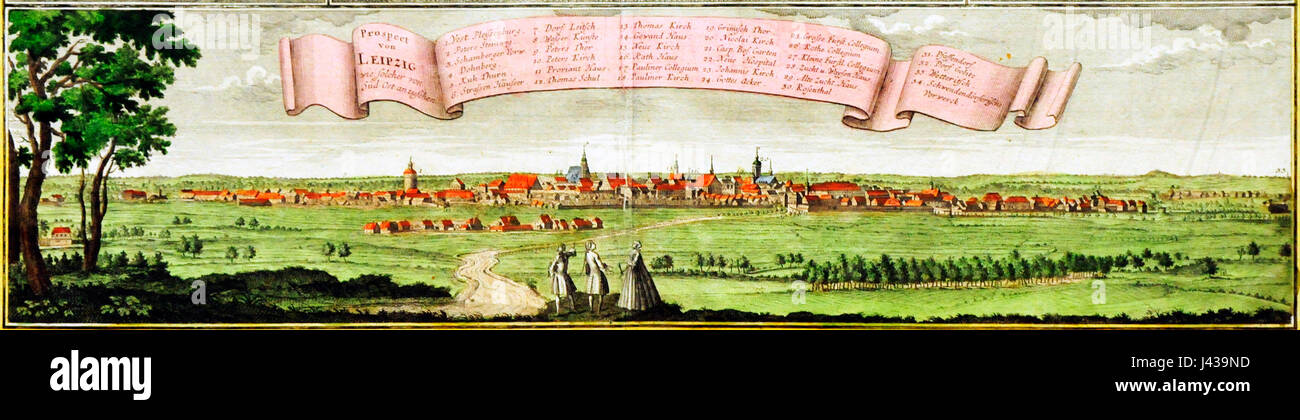 Prospect
von
LEIPZIG
wie solcher von
Süd Ost anzusehen
1. Vest Pleissenburg.
2. Peters Strassen
4. Dohnberg.
5. Kuh Thurn
6. Strassen Häuser
7. Dorf
8. Wasser Künste
9. Peters Thor
10. Peters Kirch
11. Proviant Haus
12. Thomas Schul
13. Thomas Kirch
14. Gewand Haus
15. Neue Kirch
16. Rath Haus
17. Pauliner Collegium
18. Pauliner Kirch
19. Grimisch Thor
20. Nicolai Kirch
21. Casp. Bos. Garten
22. Neue Hospital
23. Johannis Kirch
24. Gottes Acker
25. Grosse Fürst. Collegium
26. Rothe Collegium
27. Kleine Fürstl. Collegium
28. Zucht u. Waysen Haus
29. Alte Zucht Haus
30. Rosenthal
32. Dorf
33.
34.
Vorwerck
alamy
Image ID: J439ND
www.alamy.com
J439ND